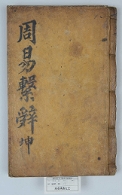 周易繫辭
坤